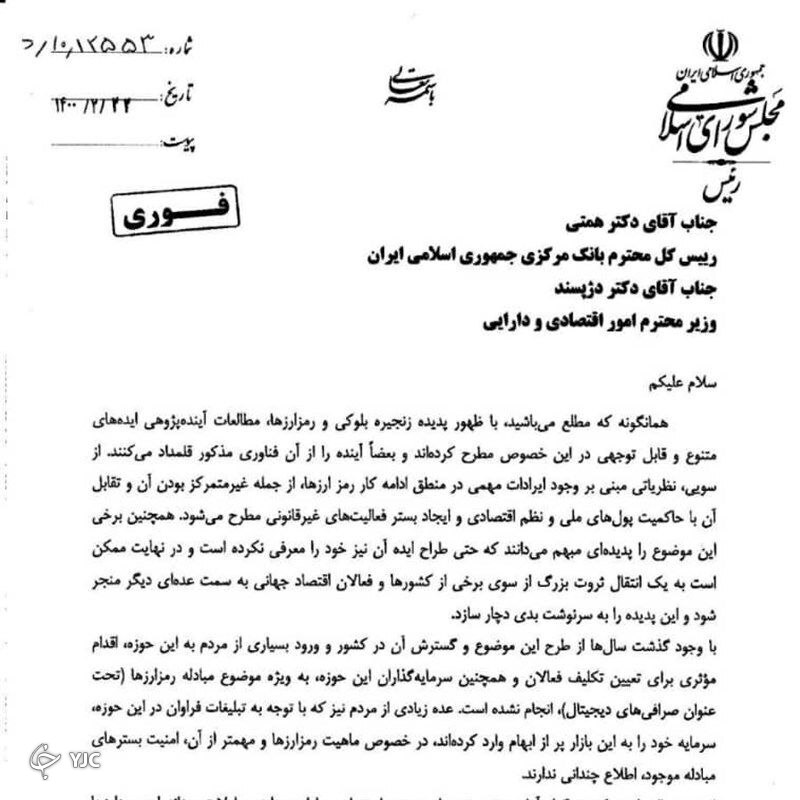 جمهوری اسلامی ایران
مجلس شورای اسلامی
رئیس
باسمه تعالی
شماره: ۱۰,۱۲۵۵۳/د
تاریخ: ۱۴۰۰/۲/۲۲
پیوست:
فـــوری
جناب آقای دکتر همتی
رییس کل محترم بانک مرکزی جمهوری اسلامی ایران
جناب آقای دکتر دژپسند
وزیر محترم امور اقتصادی و دارایی
سلام علیکم
همانگونه که مطلع می‌باشید، با ظهور پدیده زنجیره بلوکی و رمزارزها، مطالعات آینده‌پژوهی ایده‌های
متنوع و قابل توجهی در این خصوص مطرح کرده‌اند و بعضاً آینده را از آن فناوری مذکور قلمداد می‌کنند. از
سویی، نظریاتی مبنی بر وجود ایرادات مهمی در منطق ادامه کار رمز ارزها، از جمله غیرمتمرکز بودن آن و تقابل
آن با حاکمیت پول‌های ملی و نظم اقتصادی و ایجاد بستر فعالیت‌های غیرقانونی مطرح می‌شود. همچنین برخی
این موضوع را پدیده‌ای مبهم می‌دانند که حتی طراح ایده آن نیز خود را معرفی نکرده است و در نهایت ممکن
است به یک انتقال ثروت بزرگ از سوی برخی از کشورها و فعالان اقتصاد جهانی به سمت عده‌ای دیگر منجر
شود و این پدیده را به سرنوشت بدی دچار سازد.
با وجود گذشت سال‌ها از طرح این موضوع و گسترش آن در کشور و ورود بسیاری از مردم به این حوزه، اقدام
مؤثری برای تعیین تکلیف فعالان و همچنین سرمایه‌گذاران این حوزه، به ویژه موضوع مبادله رمزارزها (تحت
عنوان صرافی‌های دیجیتال)، انجام نشده است. عده زیادی از مردم نیز که با توجه به تبلیغات فراوان در این حوزه،
سرمایه خود را به این بازار پر از ابهام وارد کرده‌اند، در خصوص ماهیت رمزارزها و مهمتر از آن، امنیت بسترهای
مبادله موجود، اطلاع چندانی ندارند.
YJC